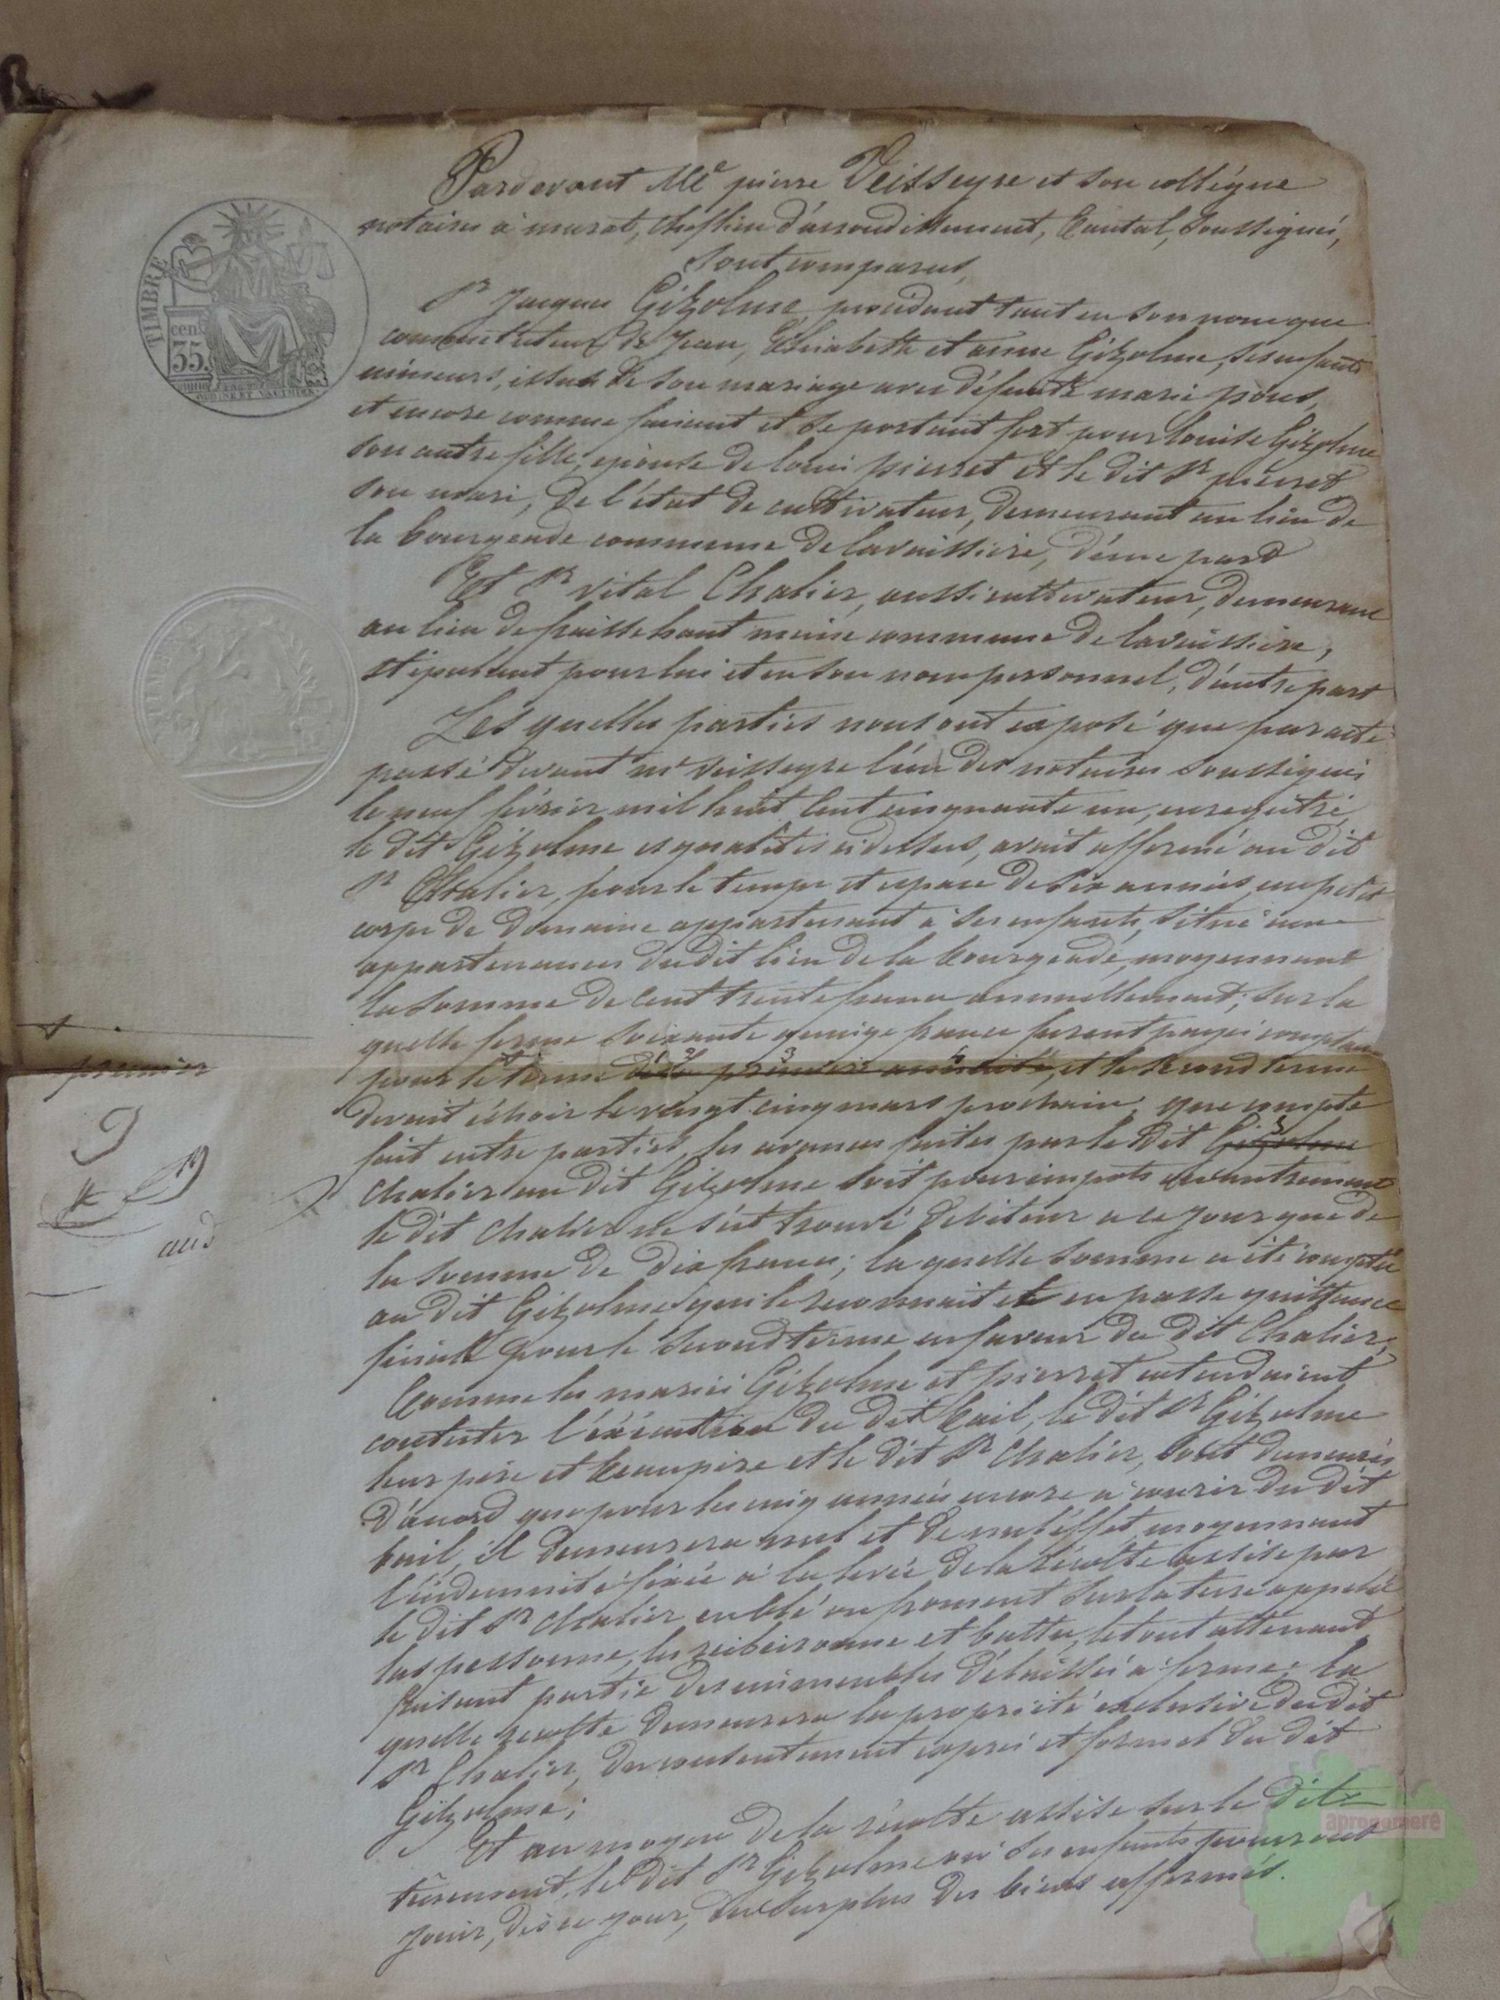 TIMBRE
cen.
35.
Pardevant Me pierre Veisseyre et son collégue
notaires à murat, cheflieu d'arrondissement, Cantal, soussignés,
sont comparus,
Sr Jacques Gizolme, procédant tant en son nom que
comme tuteur de Jean, Elisabeth et anne Gizolme, ses enfants
mineurs, issus de son mariage avec défunte marie pious,
et encore comme faisant et se portant fort pour louise Gizolme
son autre fille, épouse de louis pierret et le dit Sr pierret
son mari, de l'état de cultivateur, demeurant au lieu de
la bourgeade commune de lavaissière, d'une part
Et Sr vital Chalier, aussi cultivateur, demeurant
au lieu de fraissehaut même commune de lavaissière,
stipulant pour lui et en son nom personnel, d'autre part
Les quelles parties nous ont exposé que par acte
passé devant me Veisseyre l'un des notaires soussignés
le neuf février mil huit cent cinquante un, enregistré,
le dit Gizolme es qualités cidessus, avait affermé au dit
Sr Chalier, pour le temps et espace de six années, un petit
corps de domaine appartenant à ses enfants, situé aux
appartenances du dit lieu de la bourgeade, moyennant
la somme de cent trente francs annuellement; sur la
quelle ferme soixante quinze francs furent payés comptant
pour le terme de la première annuité, et le second terme
premier
devait échoir le vingt cinq mars prochain, que compte
fait entre parties, les avances faites par le dit Gizolme
Chalier au dit Gizolme soit pour impots ou autrement
le dit Chalier ne s'est trouvé débiteur a ce jour que de
la somme de dix francs; la quelle somme a été comptée
au dit Gizolme qui le reconnait et en passe quittance
finale pour le second terme en faveur du dit Chalier;
Comme les mariés Gizolme et pierret entendaient
contester l'éxécution du dit bail, le dit Sr Gizolme
leur père et beaupère et le dit Sr Chalier, sont demeurés
d'accord que pour les cinq années encore à courir du dit
bail, il demeurera nul et de nul effet, moyennant
l'indemnité fixée à la levée de la récolte assise par
le dit Sr Chalier en blé ou froment sur la terre appelée
las pessourne, les et battu, le tout attenant
faisant partie des immeubles délaissés à ferme; la
quelle récolte demeurera la propriété exclusive du dit
Sr Chalier, du consentement exprès et formel du dit
Gizolme;
Et au moyen de la récolte assise sur le dit
tènement, le dit Sr Gizolme ou ses enfants pourront
jouir, dès ce jour, du surplus des biens affermés.
aprogemere